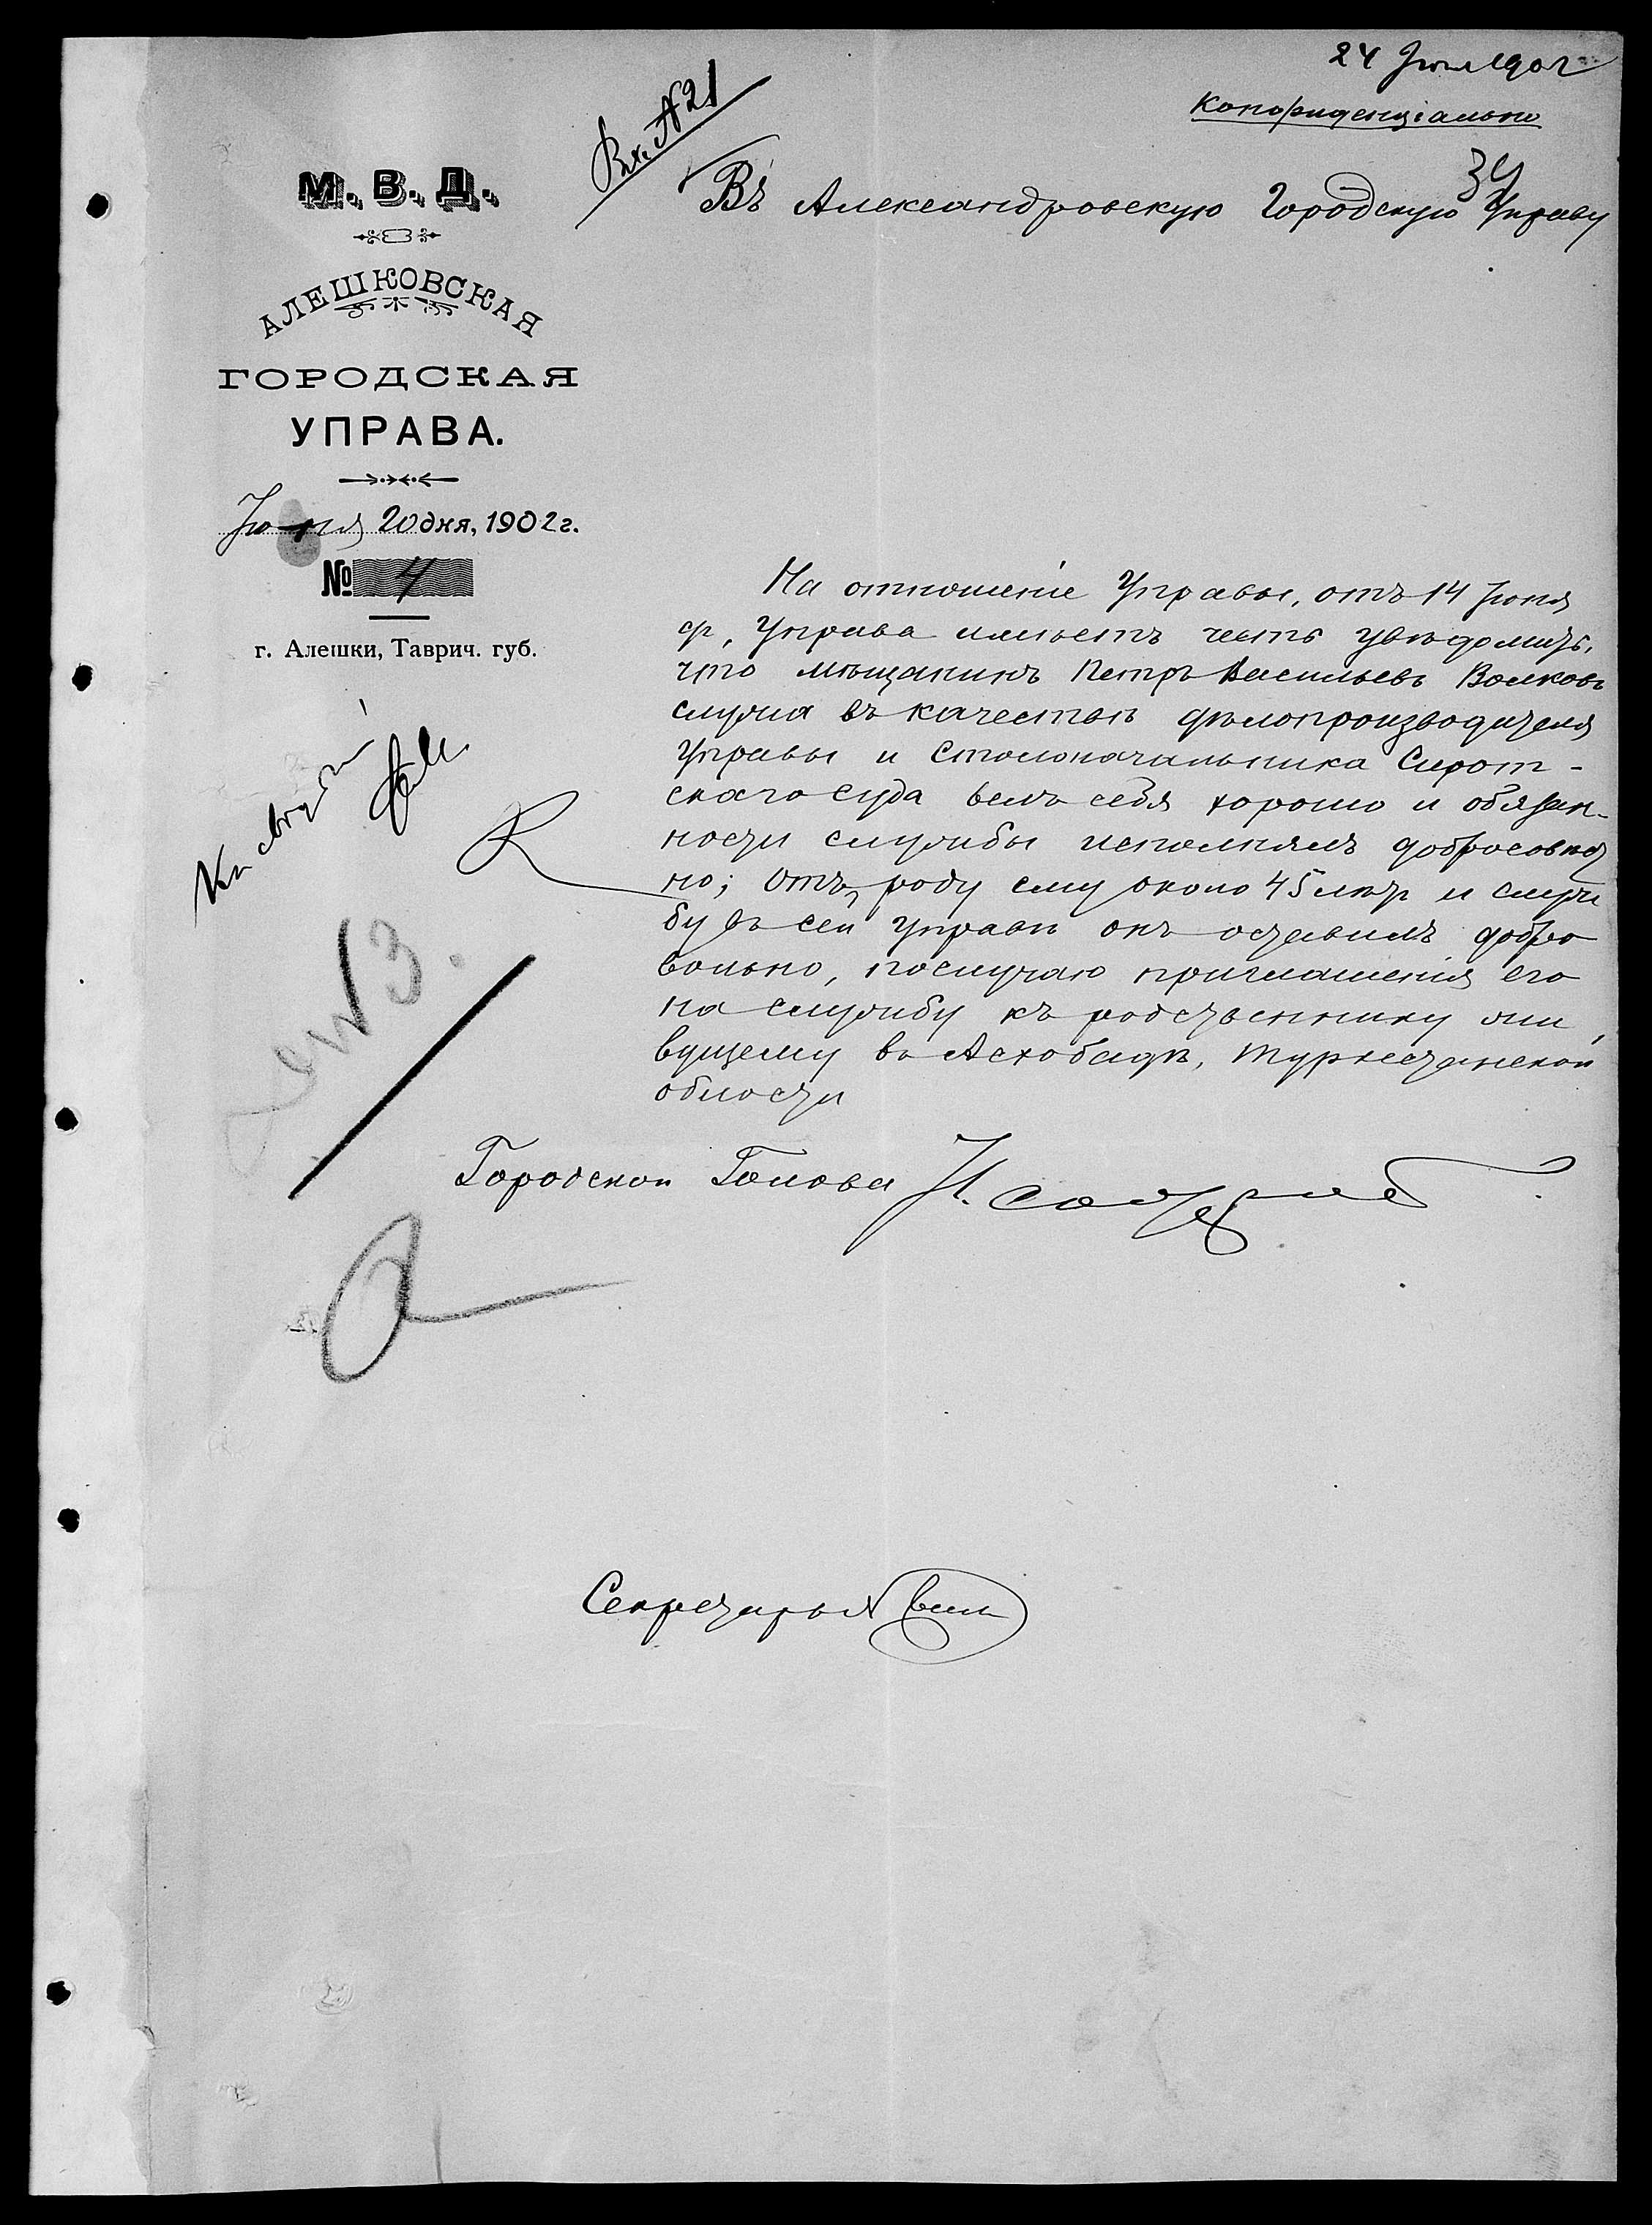 24 Июня 1902
Конфиденціально
Вх. № 21
34
Въ Александровскую Городскую Управу
М. В. Д.
АЛЕШКОВСКАЯ
ГОРОДСКАЯ
УПРАВА.
Июня 20 дня, 1902 г.
№ 4
г. Алешки, Таврич. губ.
На отношеніе Управы, отъ 14 Июня
Управа имѣетъ честь увѣдомить,
что мѣщанинъ Петръ Васильевъ Волковъ
служа въ качествѣ дѣлопроизводителя
Управы и Столоначальника Сирот-
скаго суда велъ себя хорошо и обязан-
ности службы исполнялъ добросовѣст
но; отъ роду ему около 45 лѣтъ и служ
бу въ сей Управѣ онъ оставилъ добро
вольно, послучаю приглашенія его
на службу къ родственнику жи
вущему въ Асхобадѣ, Туркестанской
области
Городской Голова
Секретарь